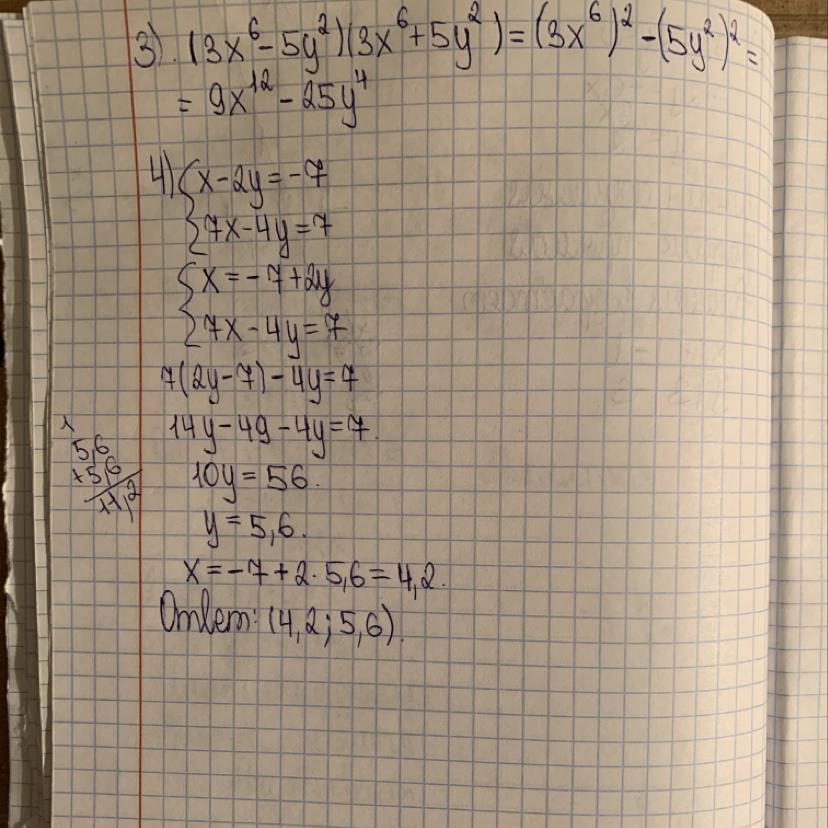 3). (3x⁶-5y²)(3x⁶+5y²)=(3x⁶)²-(5y²)²=
= 9x¹²-25y⁴
4) { x-2y=-7
7x-4y=7
{ x=-7+2y
7x-4y=7
7(2y-7)-4y=7
14y-49-4y=7.
1
5,6
+5,6
11,2
10y=56.
y=5,6.
x=-7+2·5,6=4,2.
Ответ: (4,2; 5,6).